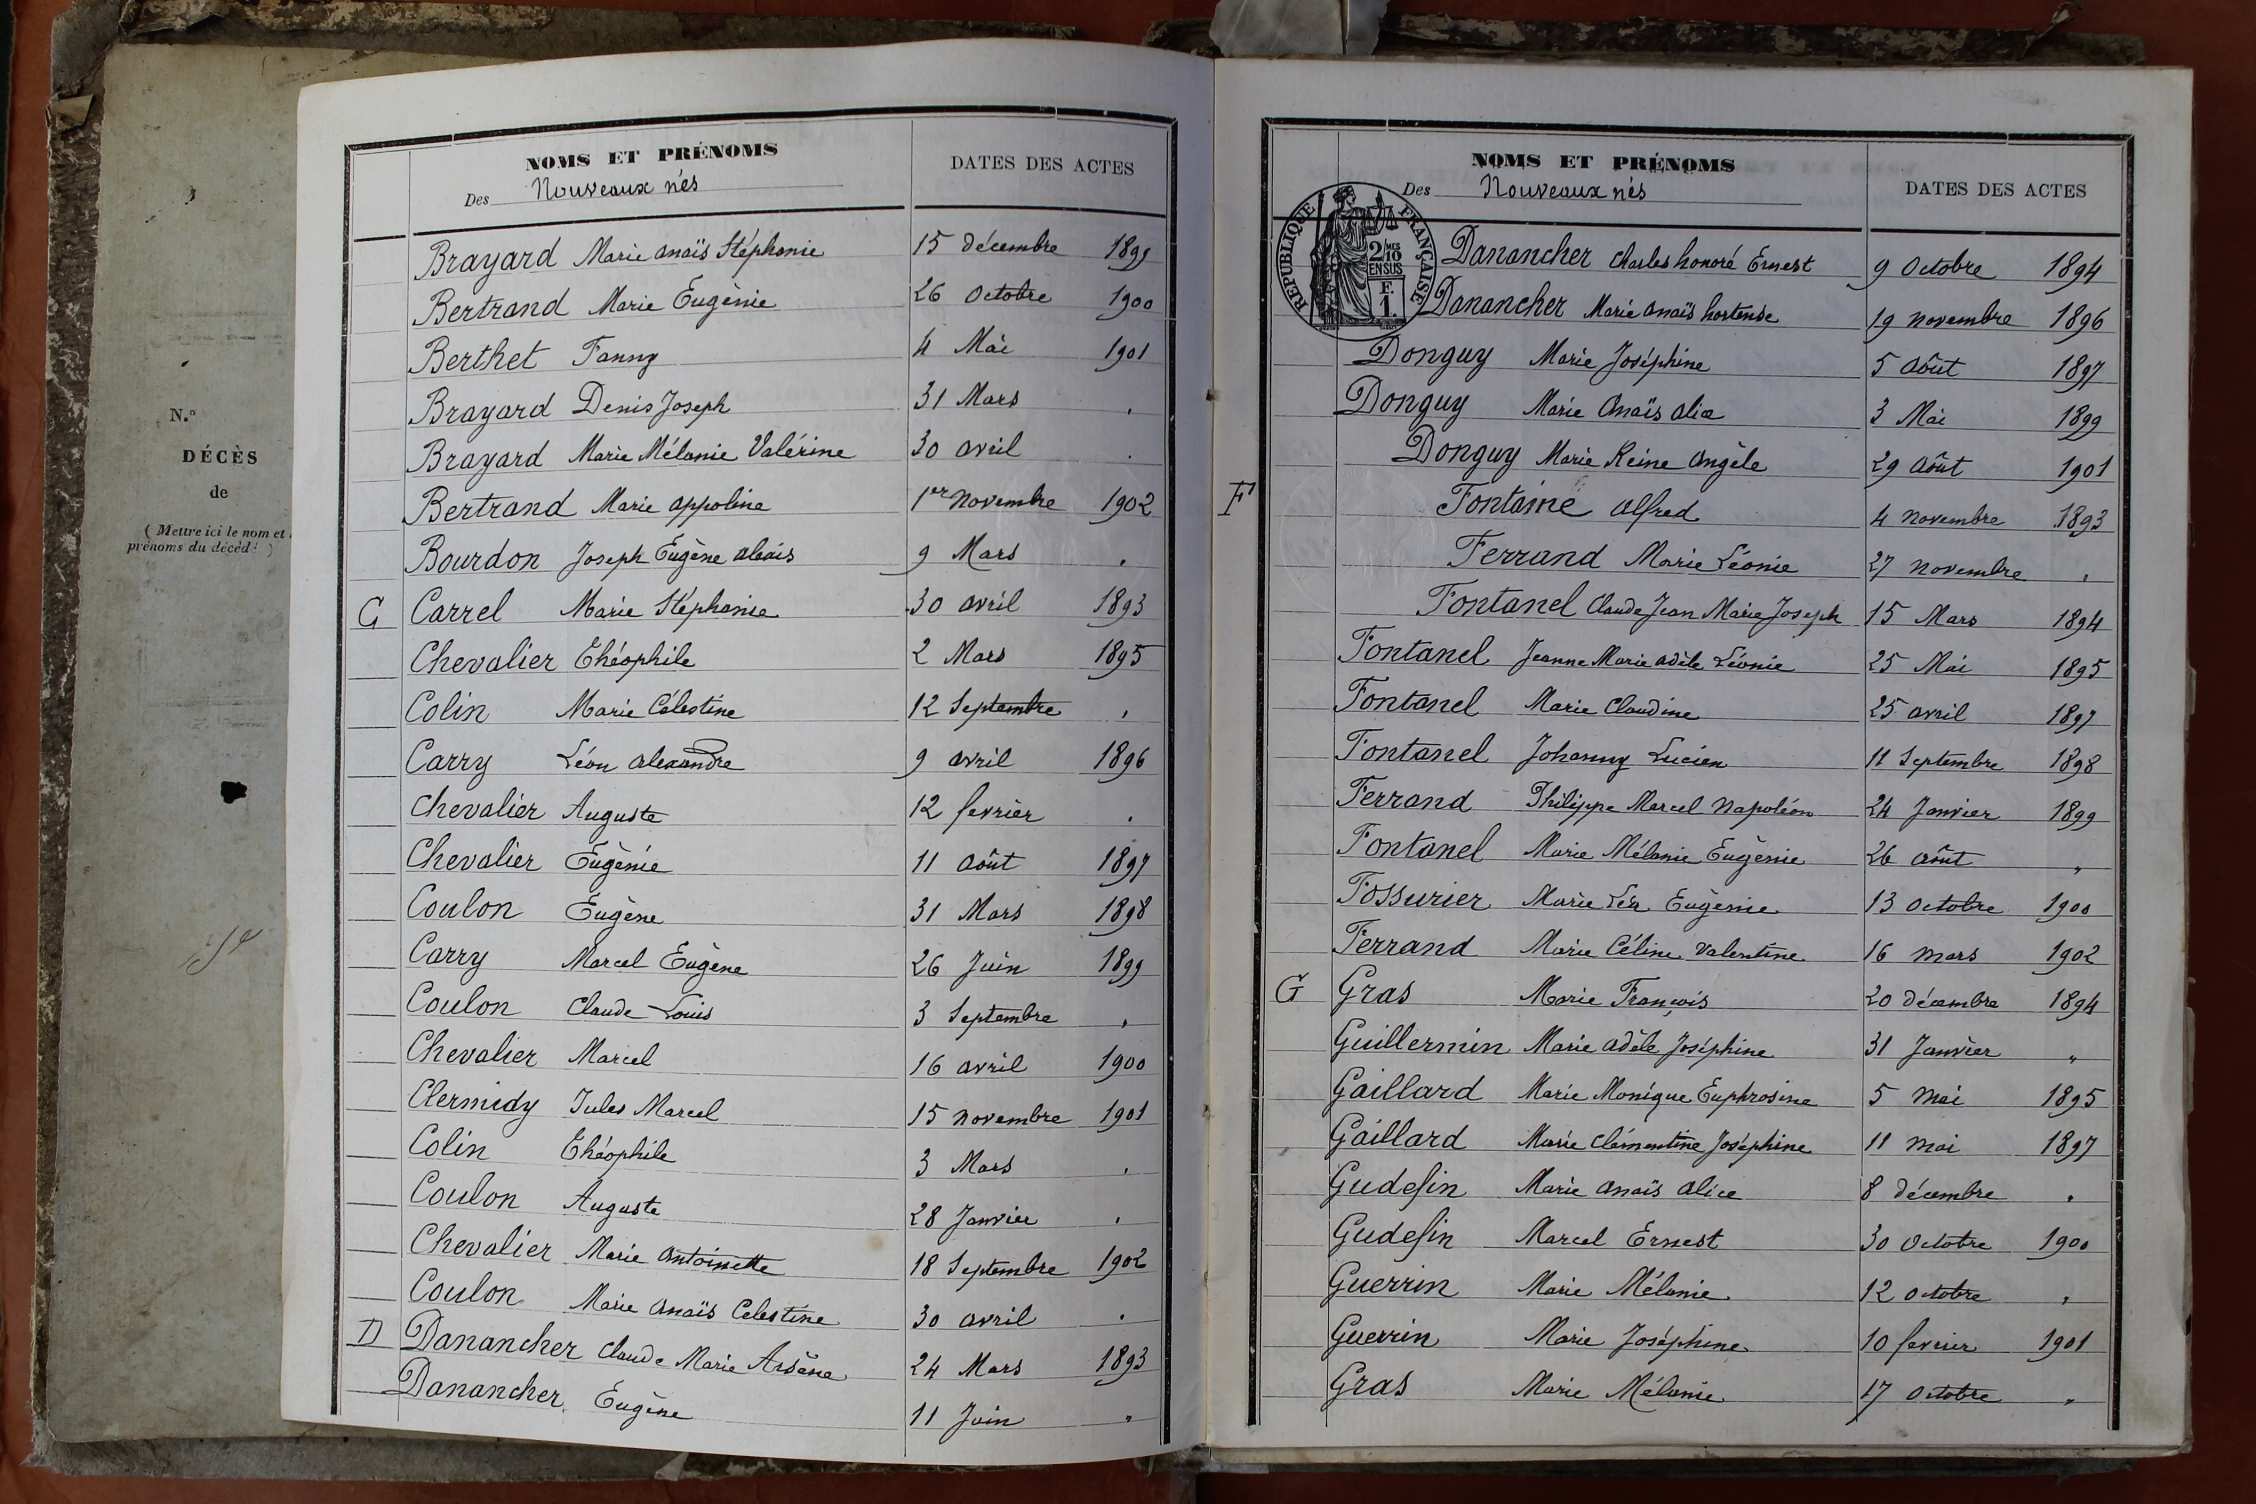 N.º
DÉCÈS
de
(Mettre ici le nom et
prénoms du décédé)
NOMS ET PRÉNOMS
DATES DES ACTES
Des Nouveaux nés
Brayard Marie Anaïs Stéphanie 15 décembre 1899
Bertrand Marie Eugénie 26 Octobre 1900
Berthet Fanny 4 Mai 1901
Brayard Denis Joseph 31 Mars "
Brayard Marie Mélanie Valérine 30 avril "
Bertrand Marie appoline 1er Novembre 1902
Bourdon Joseph Eugène alexis 9 Mars "
C Carrel Marie Stéphanie 30 avril 1893
Chevalier Théophile 2 Mars 1895
Colin Marie Célestine 12 Septembre "
Carry Léon alexandre 9 avril 1896
Chevalier Auguste 12 fevrier "
Chevalier Eugénie 11 Août 1897
Coulon Eugène 31 Mars 1898
Carry Marcel Eugène 26 Juin 1899
Coulon Claude Louis 3 Septembre "
Chevalier Marcel 16 avril 1900
Clermidy Jules Marcel 15 novembre 1901
Colin Théophile 3 Mars "
Coulon Auguste 28 Janvier "
Chevalier Marie Antoinette 18 Septembre 1902
Coulon Marie Anaïs Celestine 30 avril "
D Danancher Claude Marie Arsène 24 Mars 1893
Danancher Eugène 11 Juin "
NOMS ET PRÉNOMS
DATES DES ACTES
Des Nouveaux nés
RÉPUBLIQUE FRANÇAISE
2/10 MES
EN SUS
F.
1.
Danancher Charles honoré Ernest 9 Octobre 1894
Danancher Marie Anaïs hortense 19 novembre 1896
Donguy Marie Joséphine 5 Août 1897
Donguy Marie Anaïs alia 3 Mai 1899
Donguy Marie Reine Angèle 29 Août 1901
F Fontaine Alfred 4 novembre 1893
Ferrand Marie Léonie 27 novembre "
Fontanel Claude Jean Marie Joseph 15 Mars 1894
Fontanel Jeanne Marie adèle Léonie 25 Mai 1895
Fontanel Marie Claudine 25 avril 1897
Fontanel Johanny Lucien 11 Septembre 1898
Ferrand Philippe Marcel Napoléon 24 Janvier 1899
Fontanel Marie Mélanie Eugénie 26 Août "
Fossurier Marie Léa Eugénie 13 Octobre 1900
Ferrand Marie Céline Valentine 16 mars 1902
G Gras Marie François 20 décembre 1894
Guillermin Marie adèle Joséphine 31 Janvier "
Gaillard Marie Monique Euphrosine 5 mai 1895
Gaillard Marie Clémentine Joséphine 11 mai 1897
Gudefin Marie Anaïs Alice 8 décembre "
Gudefin Marcel Ernest 30 Octobre 1900
Guerrin Marie Mélanie 12 octobre "
Guerrin Marie Joséphine 10 fevrier 1901
Gras Marie Mélanie 17 Octobre "